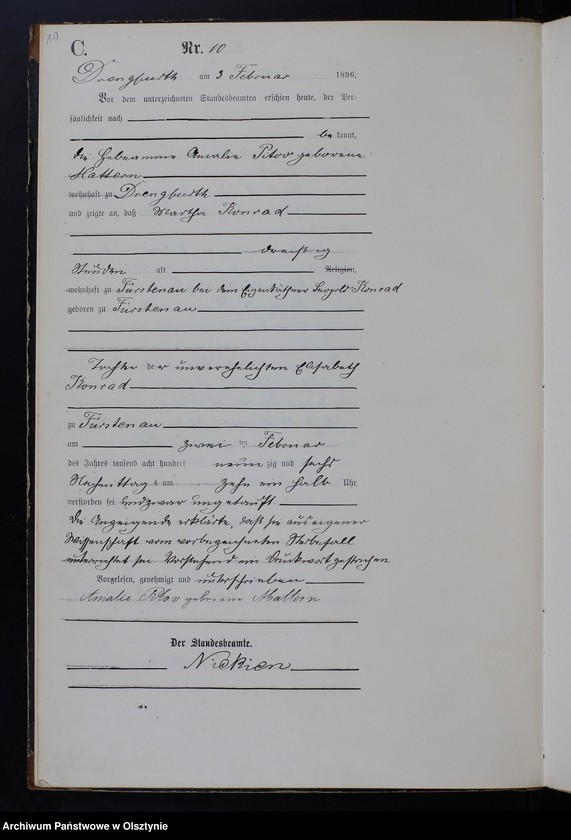 10
C.
Nr. 10
Drengfurth am 3 Februar 1896.
Vor dem unterzeichneten Standesbeamten erschien heute, der Per-
sönlichkeit nach
be kannt,
die Hebeamme Amalie Pitor geborene
Mattern
wohnhaft zu Drengfurth
und zeigte an, daß Martha Konrad
dreißig
Stunden alt Religion,
wohnhaft zu Fürstenau bei dem Eigenkäthner Leopold Konrad
geboren zu Fürstenau
Tochter der unverehelichten Elisabeth
Konrad
zu Fürstenau
am zwei ten Februar
des Jahres tausend acht hundert neun zig und sechs
Nachmittags um zehn ein halb Uhr
verstorben sei und zwar ungetauft.
Die Anzeigende erklärte, daß sie aus eigener
Wissenschaft vom vorbezeichneten Sterbefall
unterrichtet sei. Vorstehend ein Druckwort gestrichen
Vorgelesen, genehmigt und unterschrieben
Amalie Pitor geborene Mattern
Der Standesbeamte.
Archiwum Państwowe w Olsztynie